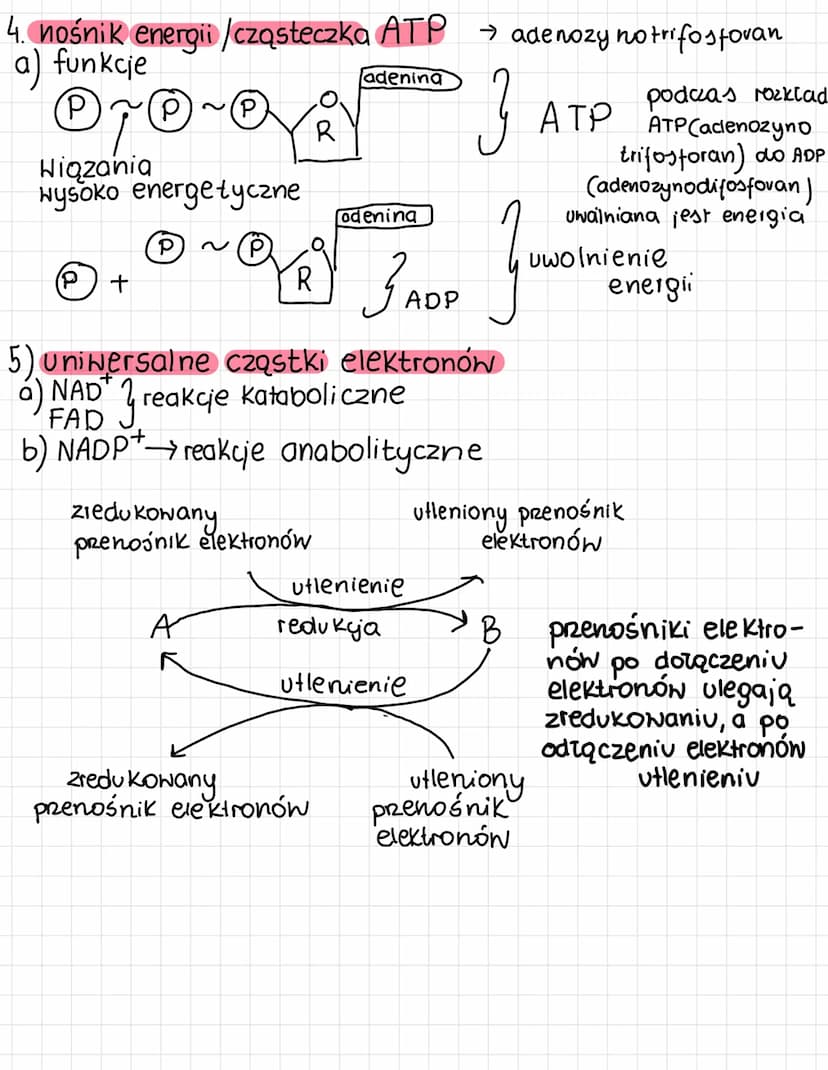 4. nośnik energii/cząsteczka ATP → adenozynotrifosforan
a) funkcje
adenina
P ~ P ~ P
O
R
} ATP
podczas rozkład
ATP(adenozyno
trifosforan) do ADP
(adenozynodifosforan)
uwalniana jest energia
Wiązania
wysoko energetyczne
adenina
P + P ~ P
O
R
} ADP
} uwolnienie
energii
5) uniwersalne cząstki elektronów
a) NAD⁺
FAD
} reakcje kataboliczne
b) NADP⁺ → reakcje anabolityczne
zredukowany
przenośnik elektronów
utleniony przenośnik
elektronów
utlenienie
A redukcja B
utlenienie
przenośniki elektro-
nów po dołączeniu
elektronów ulegają
zredukowaniu, a po
odłączeniu elektronów
utlenieniu
zredukowany
przenośnik elektronów
utleniony
przenośnik
elektronów